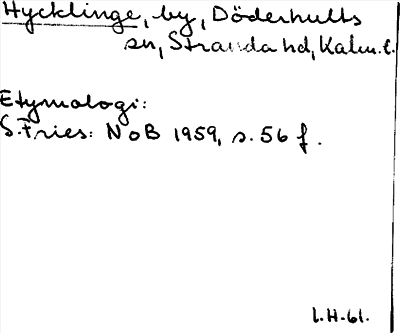 Hycklinge, by, Döderhults
sn, Stranda hd, Kalm. l.
Etymologi:
S. Fries: NoB 1959, s. 56 f.
l. H-61.